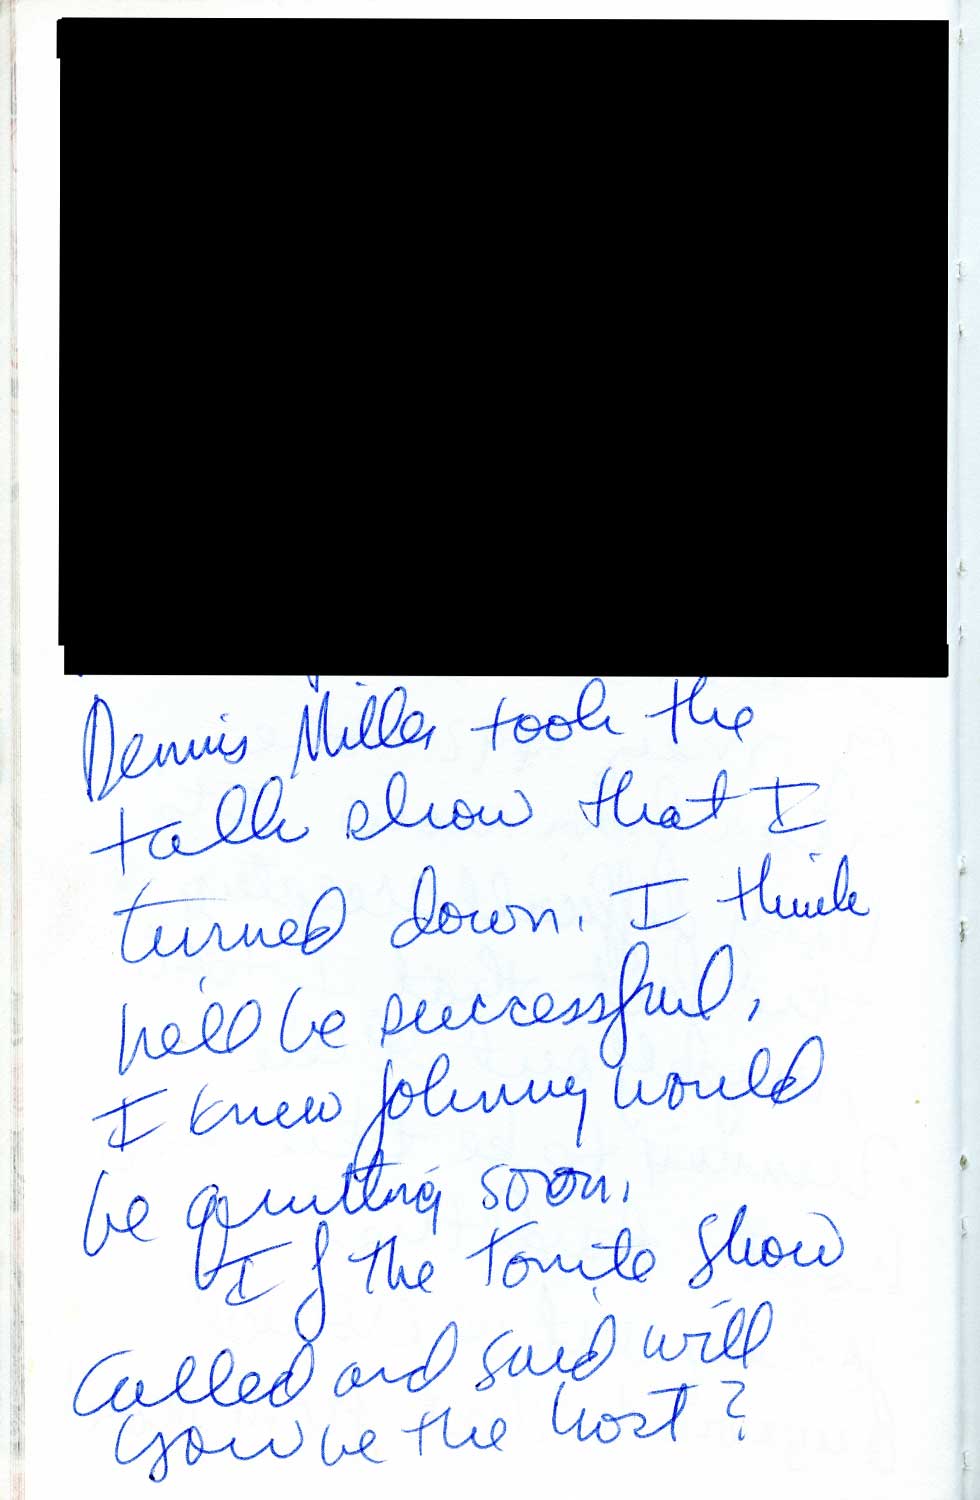 Dennis Miller took the
talk show that I
turned down. I think
he'll be successful.
I knew Johnny would
be quitting soon.
If the Tonite Show
called and said will
you be the host?